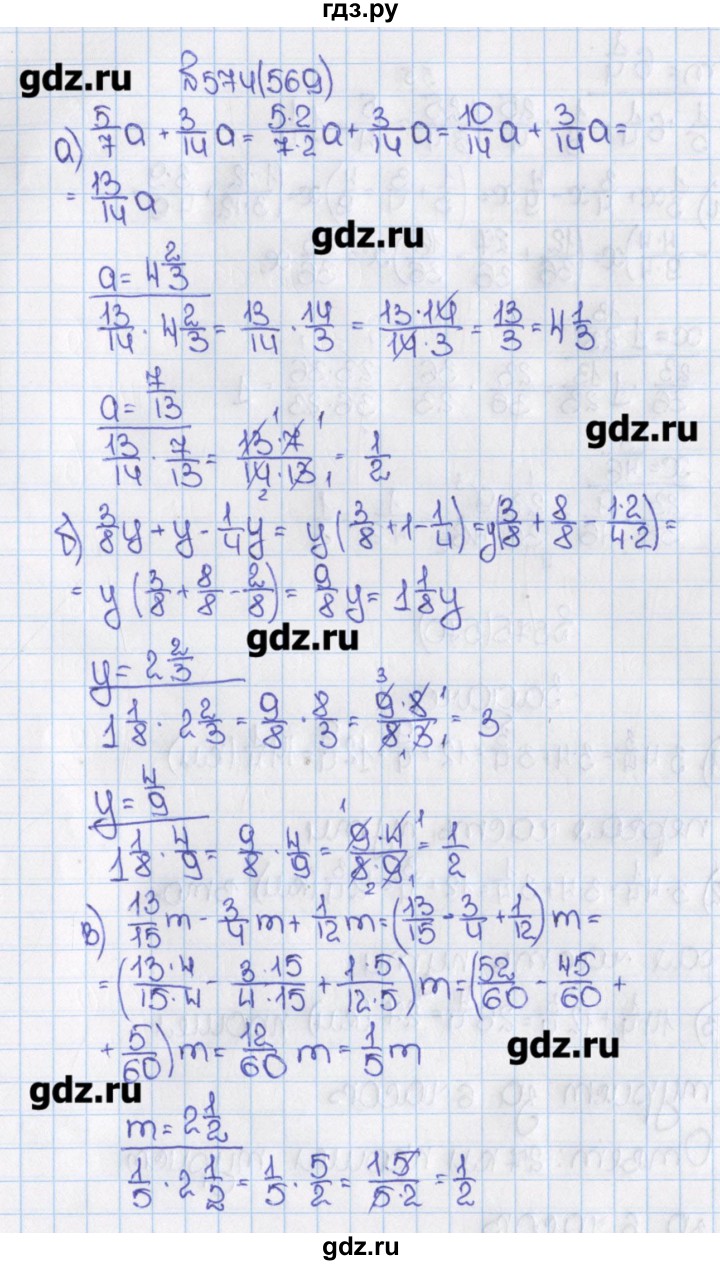 гдз.ру
gdz.ru
№574(569)
а) 5/7 a + 3/14 a = 5·2/7·2 a + 3/14 a = 10/14 a + 3/14 a =
= 13/14 a
gdz.ru
a = 4 2/3
13/14 · 4 2/3 = 13/14 · 14/3 = 13·14/14·3 = 13/3 = 4 1/3
a = 7/13
gdz.ru
13/14 · 7/13 = 13·7/14·13 = 1/2
б) 3/8 y + y - 1/4 y = y (3/8 + 1 - 1/4) = y(3/8 + 8/8 - 1·2/4·2) =
= y (3/8 + 8/8 - 2/8) = 9/8 y = 1 1/8 y
gdz.ru
y = 2 2/3
1 1/8 · 2 2/3 = 9/8 · 8/3 = 9·8/8·3 = 3
y = 4/9
1 1/8 · 4/9 = 9/8 · 4/9 = 9·4/8·9 = 1/2
в) 13/15 m - 3/4 m + 1/12 m = (13/15 - 3/4 + 1/12) m =
= (13·4/15·4 - 3·15/4·15 + 1·5/12·5) m = (52/60 - 45/60 +
+ 5/60) m = 12/60 m = 1/5 m
gdz.ru
gdz.ru
m = 2 1/2
1/5 · 2 1/2 = 1/5 · 5/2 = 1·5/5·2 = 1/2
gdz.ru